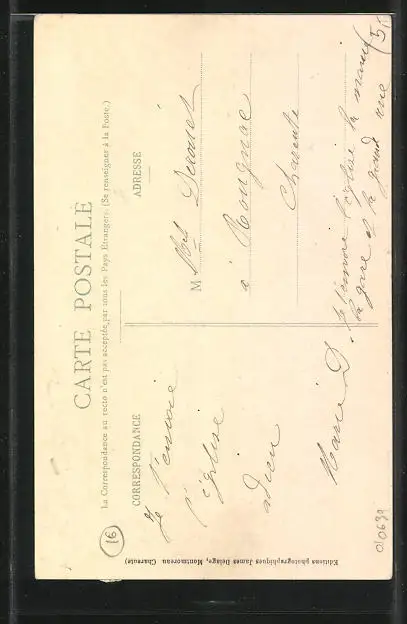 CARTE POSTALE
La Correspondance au recto n'est pas acceptée par tous les Pays Étrangers. (Se renseigner à la Poste.)
CORRESPONDANCE
ADRESSE
Je t'envoie
l'église
adieu
Marie D.
M elle
à Rougnac
Charente
je t'envoie l'église la
la gare et la grand rue
Editions photographiques James Delage, Montmoreau Charente)
16
5,